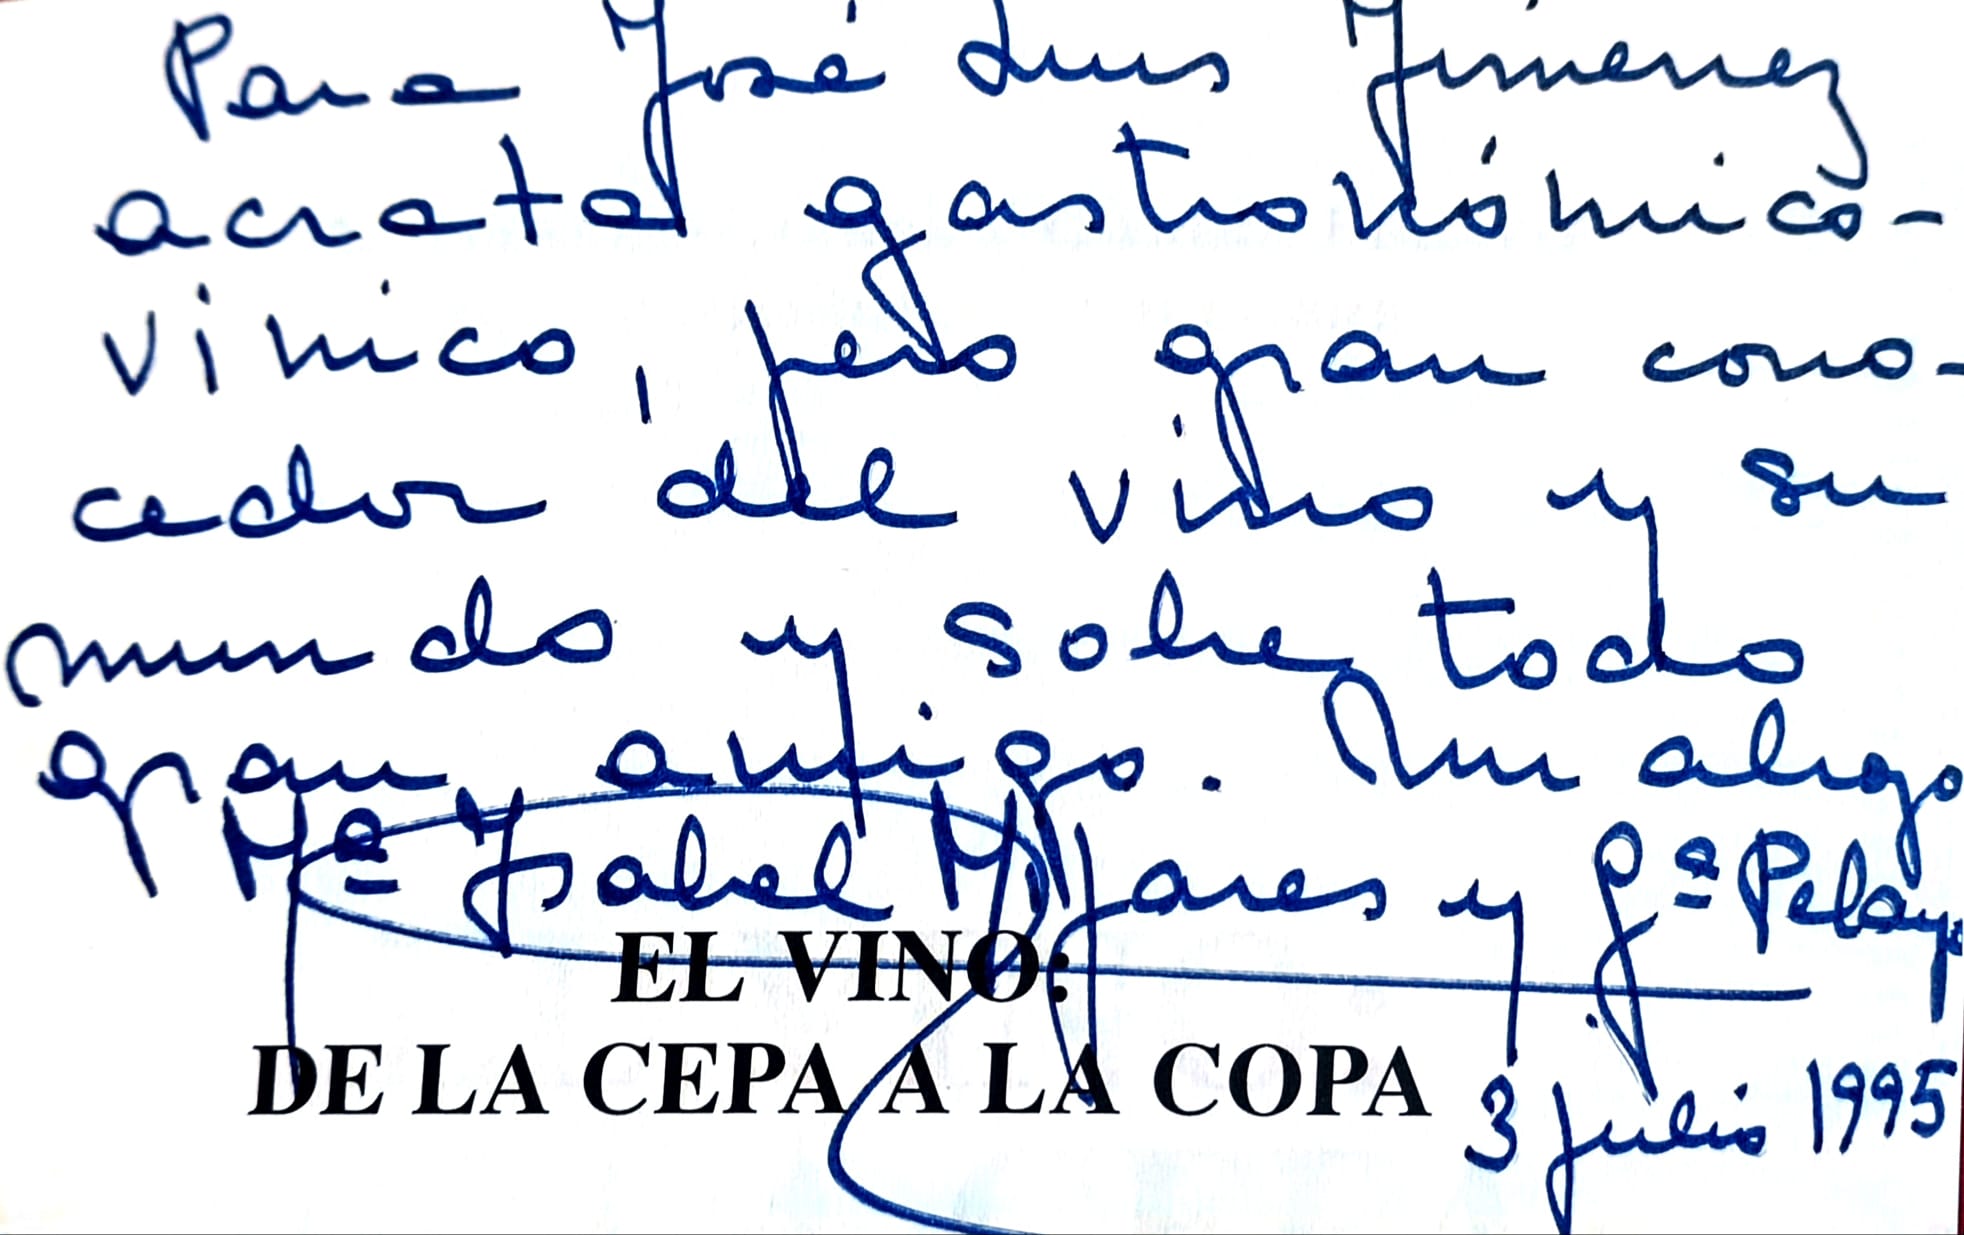 Para José Luis Jimenez
acrata gastronómico-
vinico, pero gran cono-
cedor del vino y su
mundo y sobre todo
gran amigo. Un abrazo
Mª Isabel Mijares y Gª Pelayo
EL VINO:
DE LA CEPA A LA COPA
3 julio 1995